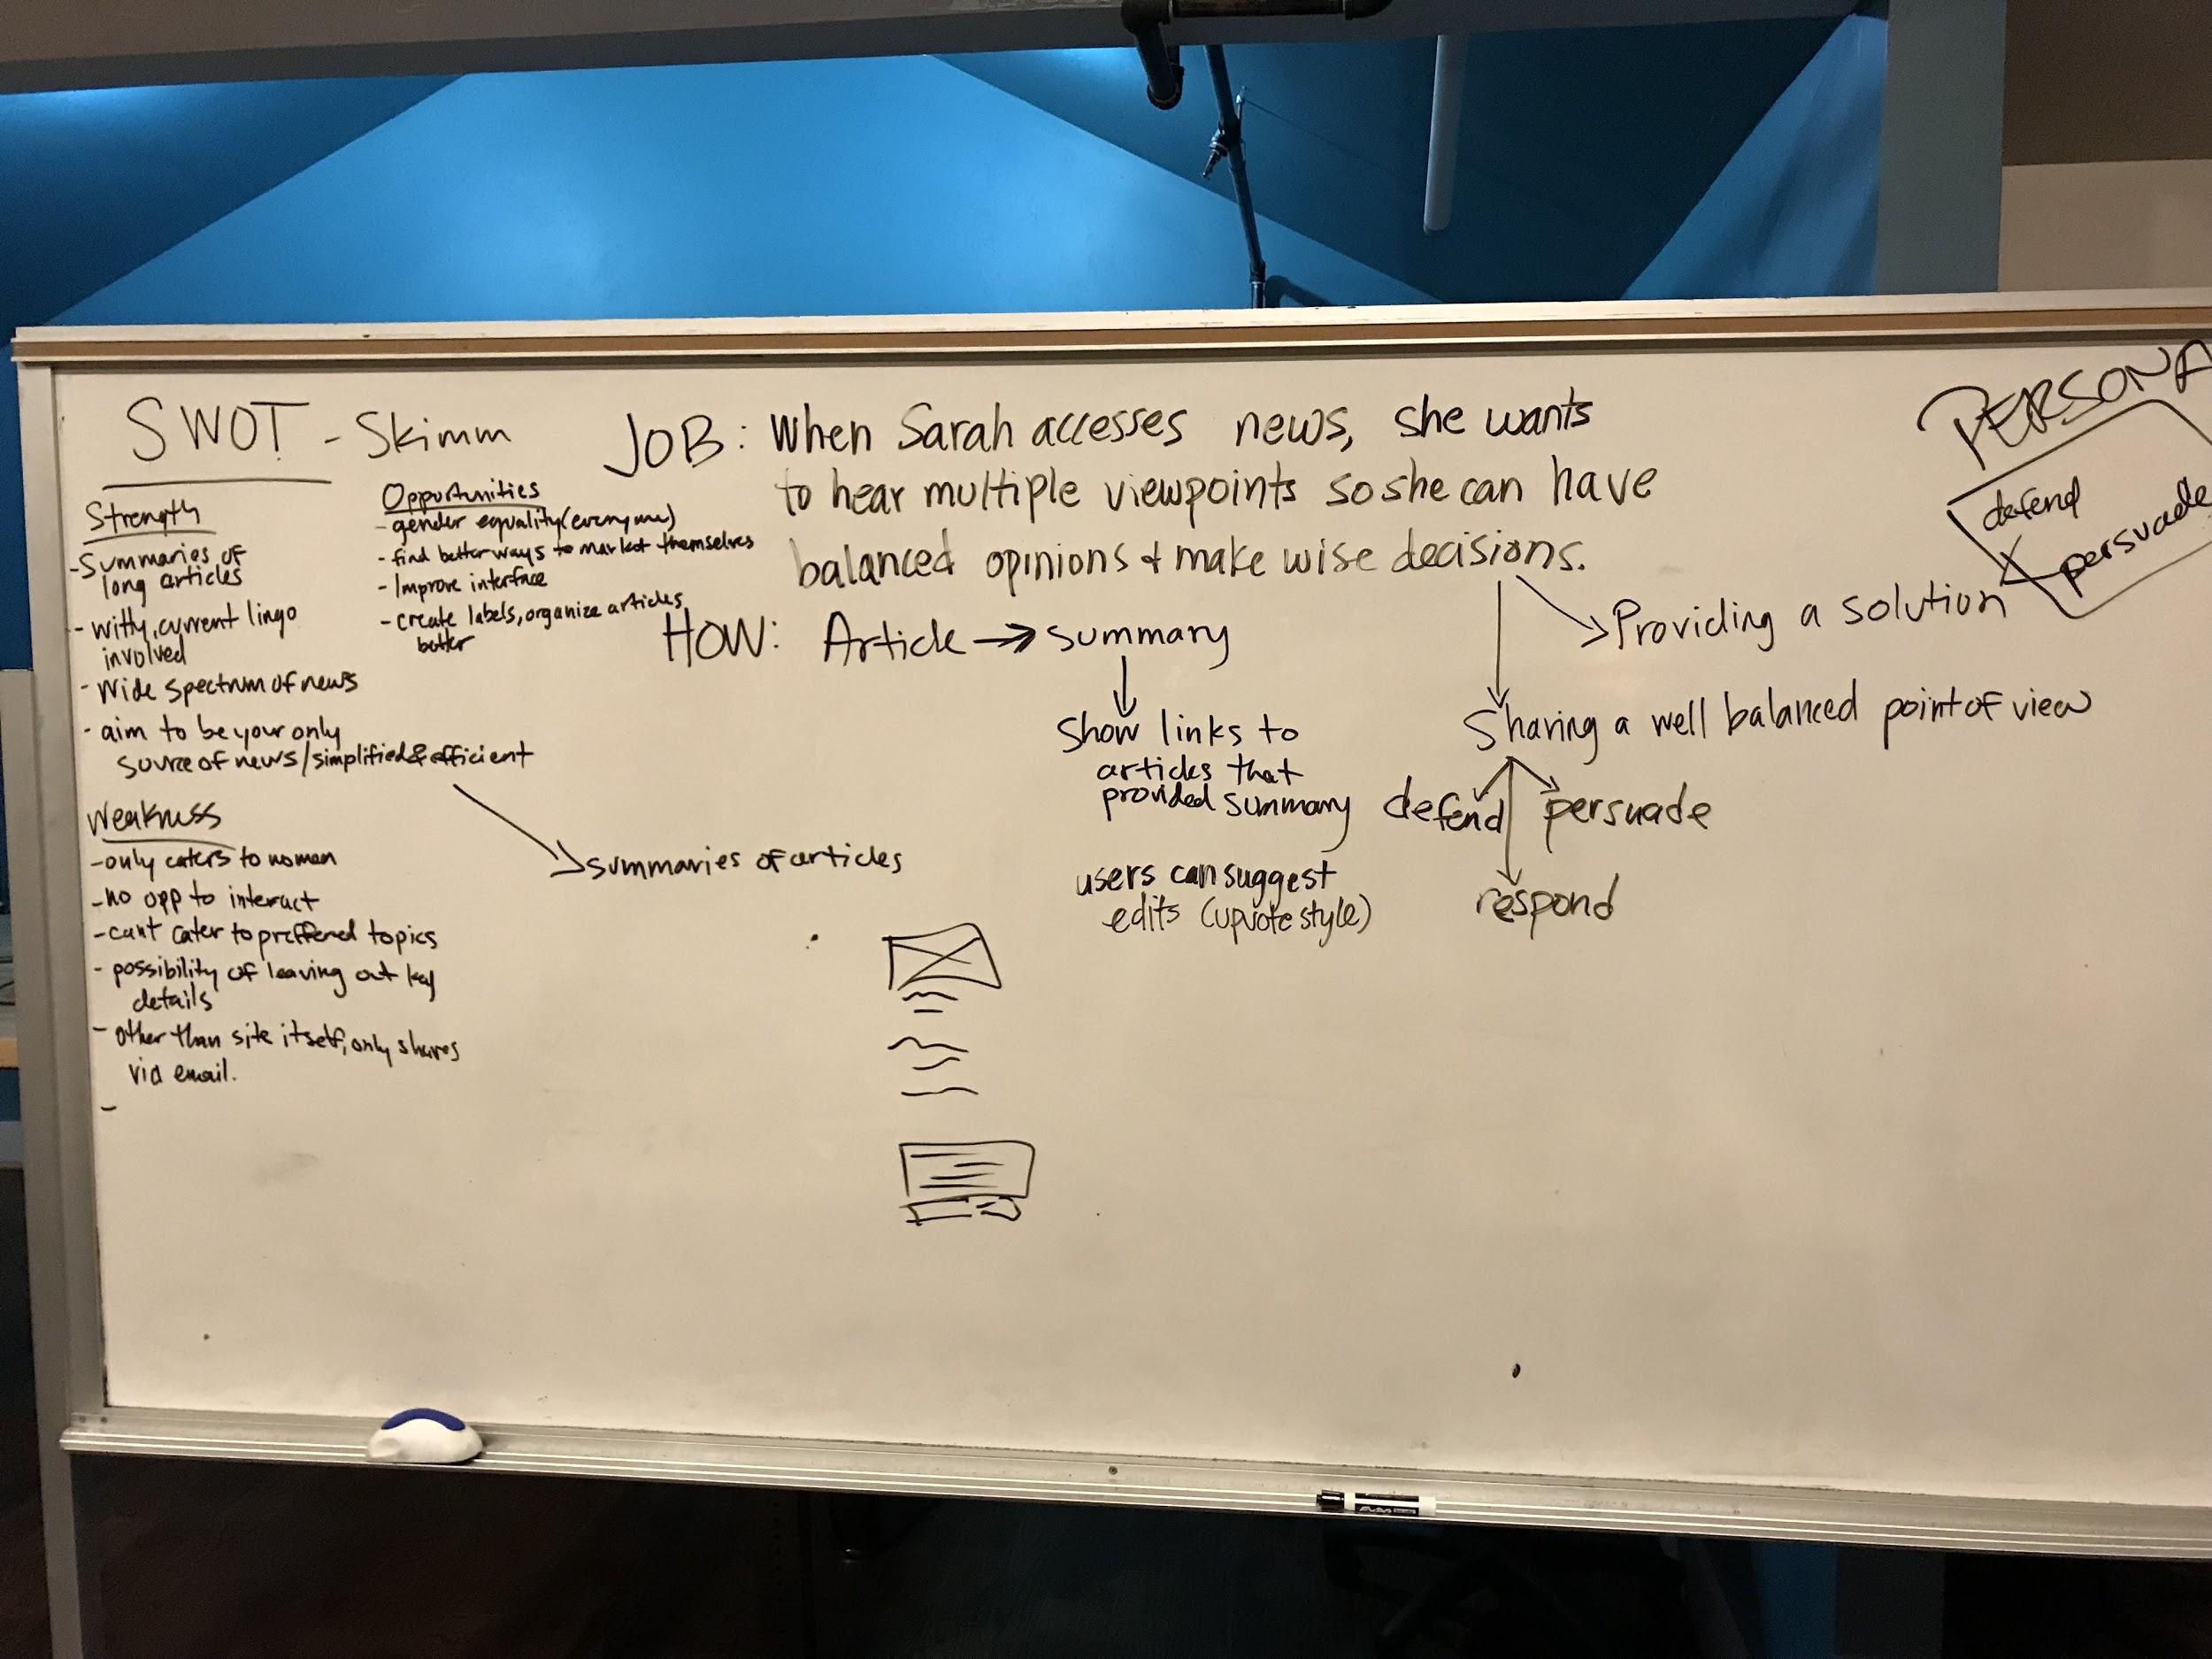 SWOT - Skimm
Strength
- Summaries of
long articles
- witty, current lingo
involved
- Wide spectrum of news
- aim to be your only
source of news/simplified & efficient
Weakness
- only caters to woman
- no opp to interact
- cant cater to preffered topics
- possibility of leaving out key
details
- other than site itself, only shares
via email.
-
Opportunities
- gender equality (everyone)
- find better ways to market themselves
- Improve interface
- create labels, organize articles
better
summaries of articles
JOB: When Sarah accesses news, she wants
to hear multiple viewpoints so she can have
balanced opinions & make wise decisions.
HOW: Article → summary
Show links to
articles that
provided summary
users can suggest
edits (upvote style)
Providing a solution
Sharing a well balanced point of view
defend persuade
respond
PERSONA
defend
persuade